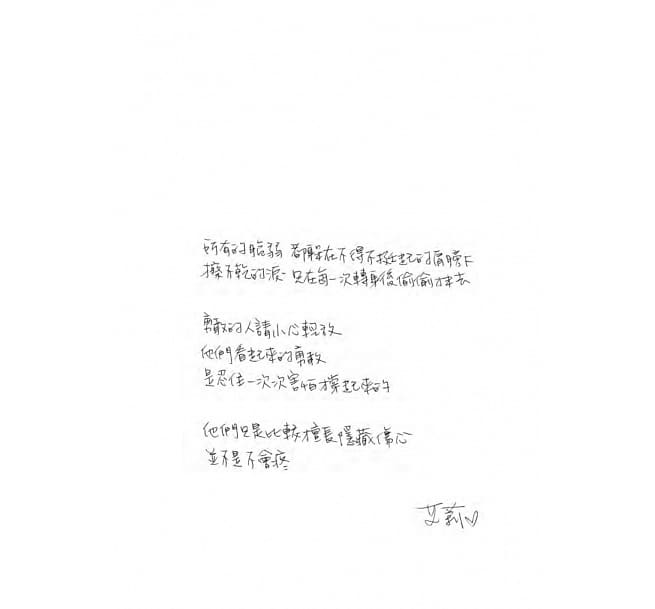 所有的脆弱 都躲在不得不挺起的肩膀下
擦不乾的淚 只在每一次轉身後偷偷抹去
勇敢的人請小心輕放
他們看起來的勇敢
是忍住一次次害怕撐起來的
他們只是比較擅長隱藏傷心
並不是不會疼
艾莉♡